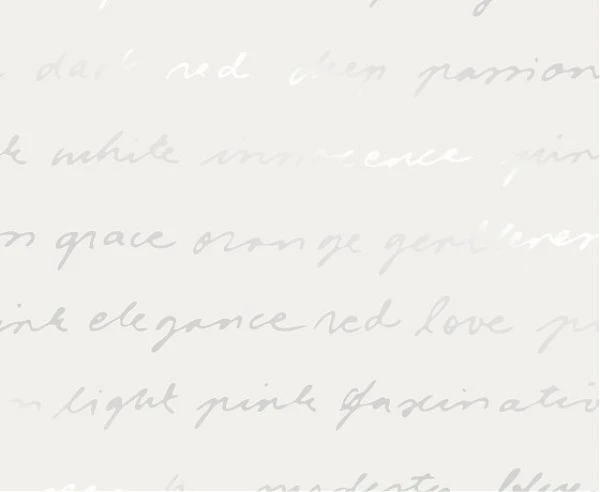 dark red deep passion
white innocence
grace orange gentleness
pink elegance red love
light pink fascination
modesty